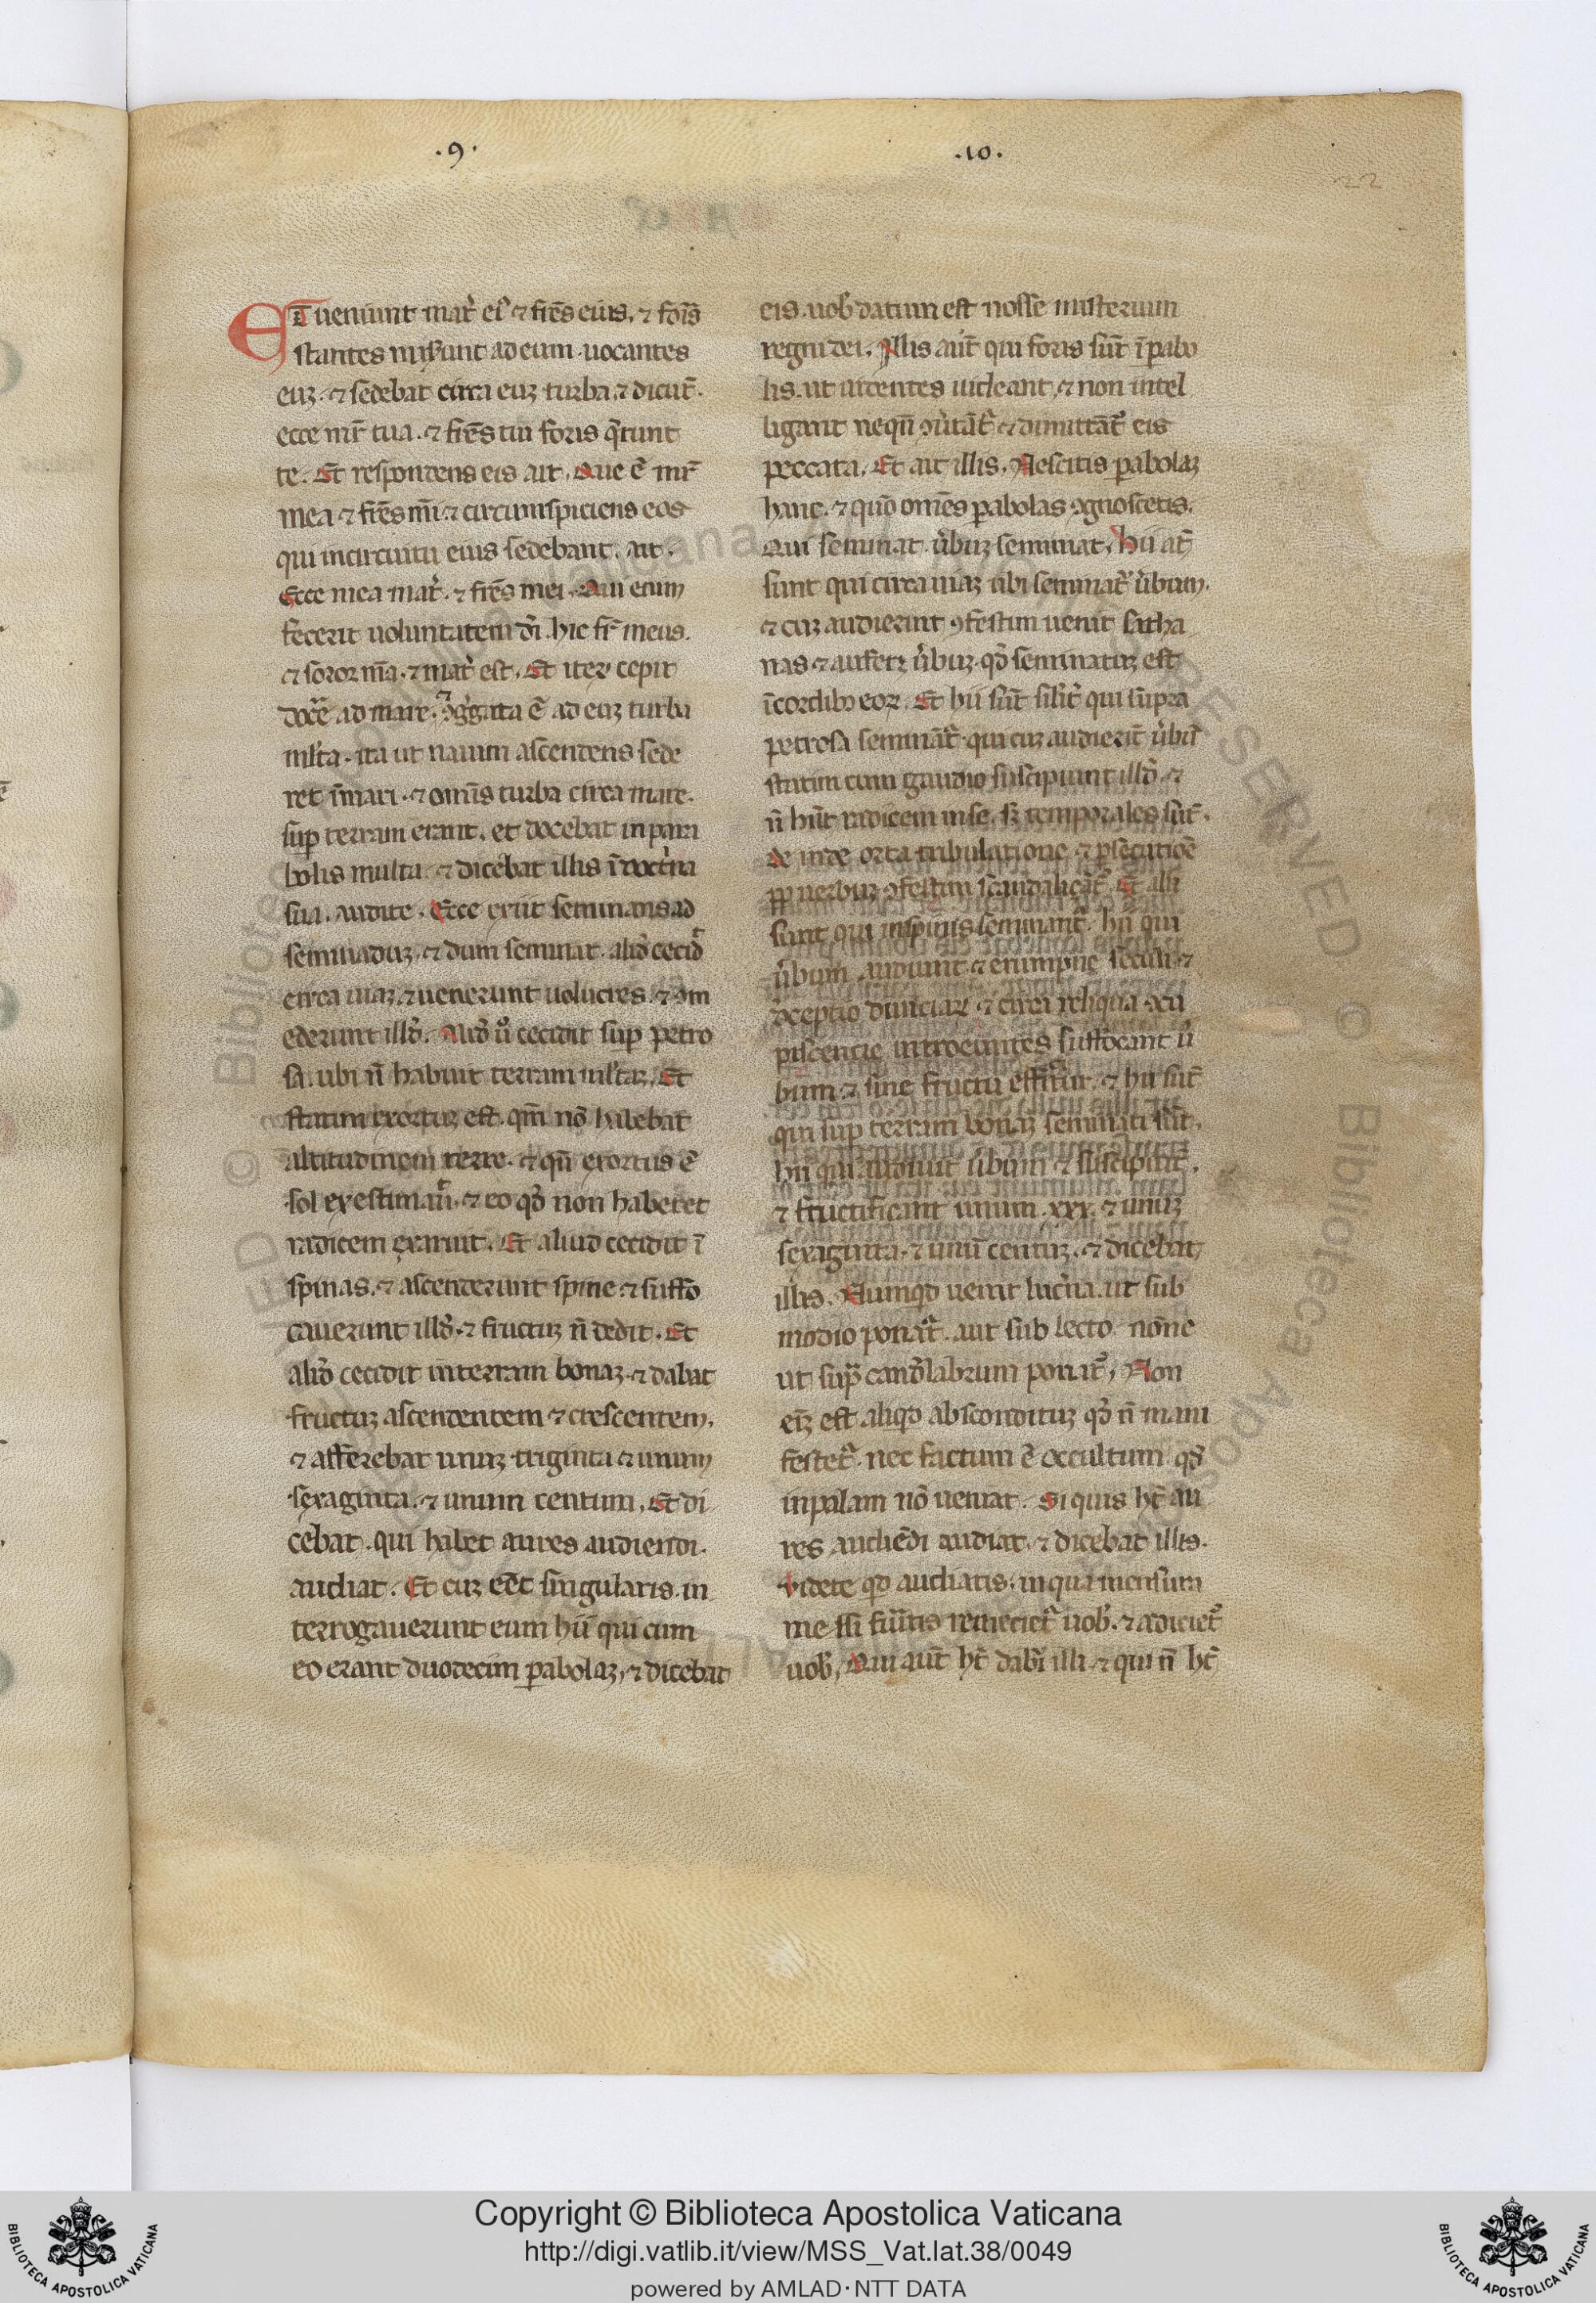 .9.
.10.
22
ET ueniunt mat̉ ei᷒ ⁊ fr̄es eius. ⁊ foris
stantes miserunt ad eum uocantes
euʒ. ⁊ sedebat circa euʒ turba ⁊ dicūt.
ecce mr̄ tua. ⁊ fr̄es tui foris q̄runt
te. Et respondens eis ait. Que ē mr̄
mea ⁊ fr̄es mī ⁊ circumspiciens eos
qui incircuitu eius sedebant. ait.
Ecce mea mat̉. ⁊ fr̄es mei. Qui enim
fecerit uoluntatem dī. hic fr̄ meus.
⁊ soror mā. ⁊ mat̉ est. Et iteꝝ cepit
docē ad mare. ⁊ ꝯg̉gata ē ad euʒ turba
ml̄ta. ita ut nauim ascendens sede
ret ī mari. ⁊ omīs turba circa mare.
suꝑ terram erant. et docebat in para
bolis multa. ⁊ dicebat illis ī doct̉na
sua. audite. Ecce exiit seminans ad
semināduʒ. ⁊ dum seminat. aliđ cecid̉
circa uiaʒ. ⁊ uenerunt uolucres. ⁊ ꝯm
ederunt illđ. Aliđ ůo cecidit suꝑ petro
sa. ubi ñ habuit terram ml̄taʒ. Et
statim exortuʒ est. qm̄ nō habebat
altitudinem terre. ⁊ qn̄ exortus ē
sol exestuauī. ⁊ eo qđ non haberet
radicem exaruit. Et aliud cecidit ī
spinas. ⁊ ascenderunt spine ⁊ suffo
cauerunt illđ. ⁊ fructuʒ ñ dedit. Et
aliđ cecidit in terram bonaʒ. ⁊ dabat
fructuʒ ascendentem ⁊ crescentem.
⁊ afferebat unuʒ triginta ⁊ unum
sexaginta. ⁊ unum centum. Et di
cebat. qui habet aures audiendi.
audiat. Et cuʒ eēt singularis. in
terrogauerunt eum hii qui cum
eo erant duodecim ꝑabolaʒ. ⁊ dicebat
eis. uob̉ datum est nosse misterium
regni dei. Illis aūt qui foris sūt ī ꝑabo
lis. ut uidentes uideant ⁊ non intel
ligant nequn̄ ꝯůtāt̉ ⁊ dimittāt̉ eis
peccata. Et ait illis. Nescitis ꝑabolaʒ
hanc. ⁊ quō omēs ꝑabolas ꝯgnoscetis.
Qui seminat. ůbuʒ seminat. Hii aūt
sunt qui circa uiaʒ ubi seminat̉ ůbum.
⁊ cuʒ audierint ꝯfestim uenit satha
nas. ⁊ aufert ůbuʒ. qđ seminatuʒ est
ī cordibʒ eoꝝ. Et hii sūt sil̄it̉ qui supra
petrosa semināt̉. qui cuʒ audierīt ůbū
statim cum gaudio suscipiunt illđ. ⁊
ñ hn̄t radicem in se. sʒ temporales sūt.
de inde orta tribulatione ⁊ ꝑsecutiōe
ꝓꝑ uerbuʒ ꝯfestim scandaliçāt̉. Et alii
sunt qui in spinis seminant̉. hii qui
ůbum audiunt. ⁊ erumpne seculi ⁊
deceptio diuiciaꝝ. ⁊ circa reliqua ꝯcu
piscencie introeuntes suffocant ů
bum ⁊ sine fructu efficitur. ⁊ hii sūt
qui suꝑ terram bonaʒ seminati sūt.
hii qui audiut ůbum ⁊ suscipiūt.
⁊ fructificant unum .xxx. ⁊ unuʒ
sexaginta. ⁊ unū centuʒ. ⁊ dicebat
illis. Numqđ uenit luc̉na. ut sub
modio ponat̉. aut sub lecto. nōne
ut supra candelabrum ponat̉. Non
eīʒ est aliqđ absconditūʒ qđ ñ mani
festet̉. nec factum ē occultum qđ
in palam nō ueniat. Si quis ht̄ au
res audiēdi audiat. ⁊ dicebat illis.
Videte qđ audiatis. in qua mensura
me ssi fu̓itis remeciet̉ uob̉. ⁊ adiciet̉
uob̉. Qui aūt ht̄ dabit̉ illi. ⁊ qui ñ ht̄
Copyright © Biblioteca Apostolica Vaticana
http://digi.vatlib.it/view/MSS_Vat.lat.38/0049
powered by AMLAD·NTT DATA
BIBLIOTECA APOSTOLICA VATICANA
BIBLIOTECA APOSTOLICA VATICANA